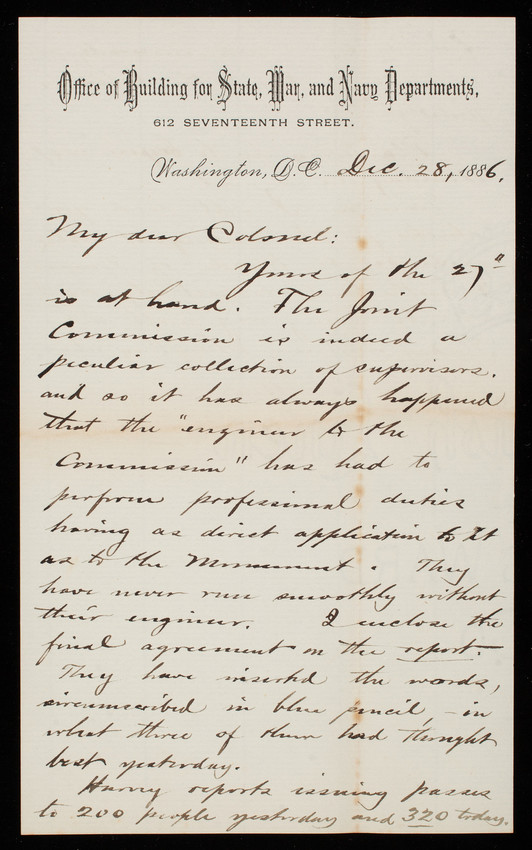 Office of Building for State, War, and Navy Departments,
612 SEVENTEENTH STREET.
Washington, D.C. Dec. 28, 1886.
My dear Colonel:
Yours of the 27"
is at hand. The Joint
Commission is indeed a
peculiar collection of supervisors,
and so it has always happened
that the "engineer to the
Commission" has had to
perform professional duties
having as direct application to it
as to the Monument. They
have never run smoothly without
their engineer. I enclose the
final agreement on the report.
They have inserted the words,
circumscribed in blue pencil, - in
what three of them had thought
best yesterday.
Harvey reports issuing passes
to 200 people yesterday and 320 today.